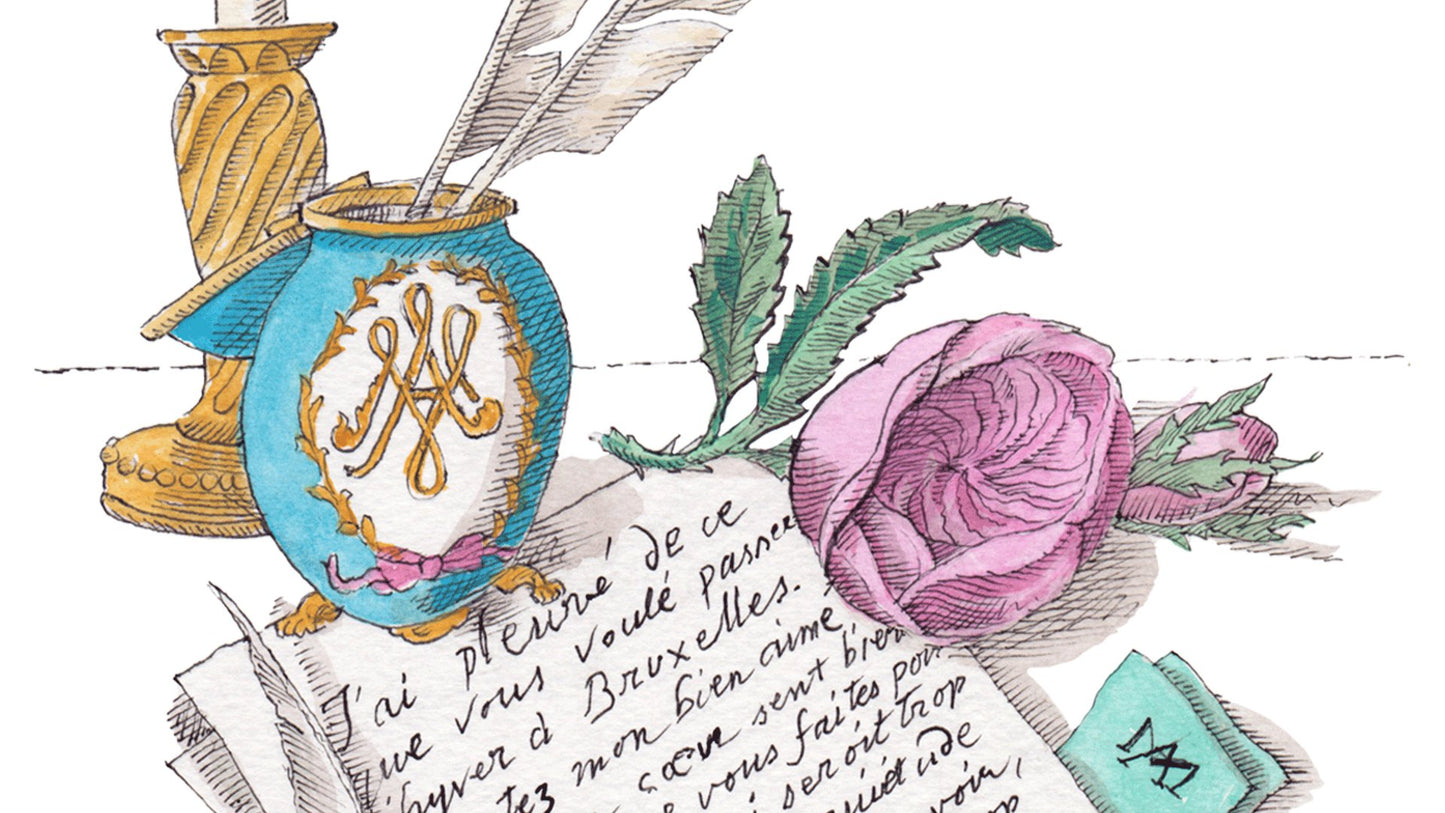 J'ai pleuré de ce
que vous voulé passer
hyver à Bruxelles.
tez mon bien aimé
sœur sent bien
vous faites pour
seroit trop
quiétude
voir,